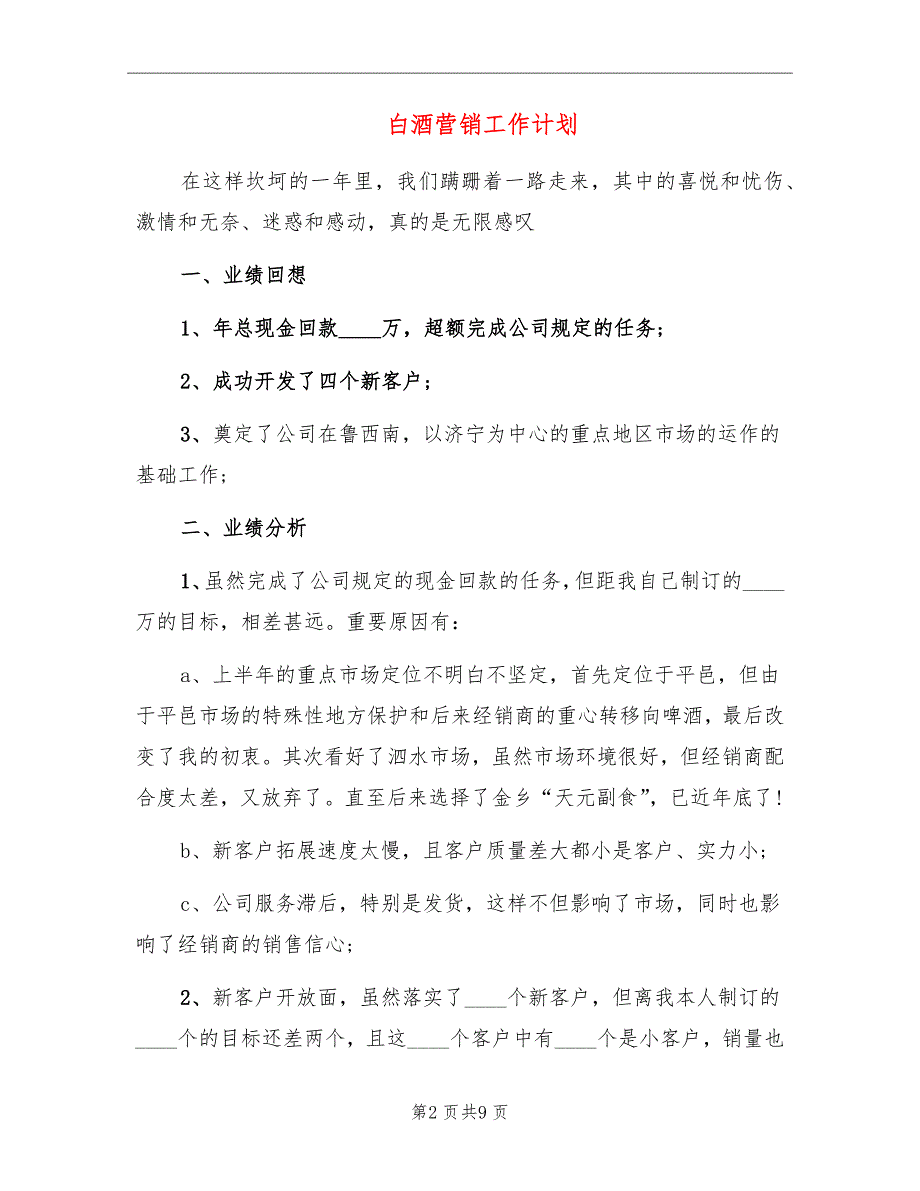 白酒营销工作计划
在这样坎坷的一年里，我们蹒跚着一路走来，其中的喜悦和忧伤、
激情和无奈、迷惑和感动，真的是无限感叹
一、业绩回想
1、年总现金回款____万，超额完成公司规定的任务；
2、成功开发了四个新客户；
3、奠定了公司在鲁西南，以济宁为中心的重点地区市场的运作的
基础工作；
二、业绩分析
1、虽然完成了公司规定的现金回款的任务，但距我自己制订的____
万的目标，相差甚远。重要原因有：
a、上半年的重点市场定位不明白不坚定，首先定位于平邑，但由
于平邑市场的特殊性地方保护和后来经销商的重心转移向啤酒，最后改
变了我的初衷。其次看好了泗水市场，虽然市场环境很好，但经销商配
合度太差，又放弃了。直至后来选择了金乡“天元副食”，已近年底了！
b、新客户拓展速度太慢，且客户质量差大都小是客户、实力小；
c、公司服务滞后，特别是发货，这样不但影响了市场，同时也影
响了经销商的销售信心；
2、新客户开放面，虽然落实了____个新客户，但离我本人制订的
____个的目标还差两个，且这____个客户中有____个是小客户，销量也
第2 页共9 页